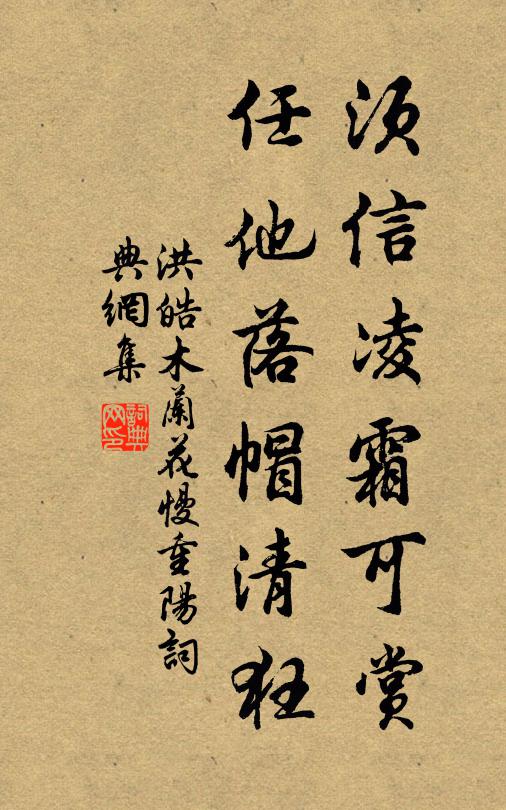 須信凌霜可賞
任他落帽清狂
洪皓木蘭花慢重陽詞
典網集
詞典網印